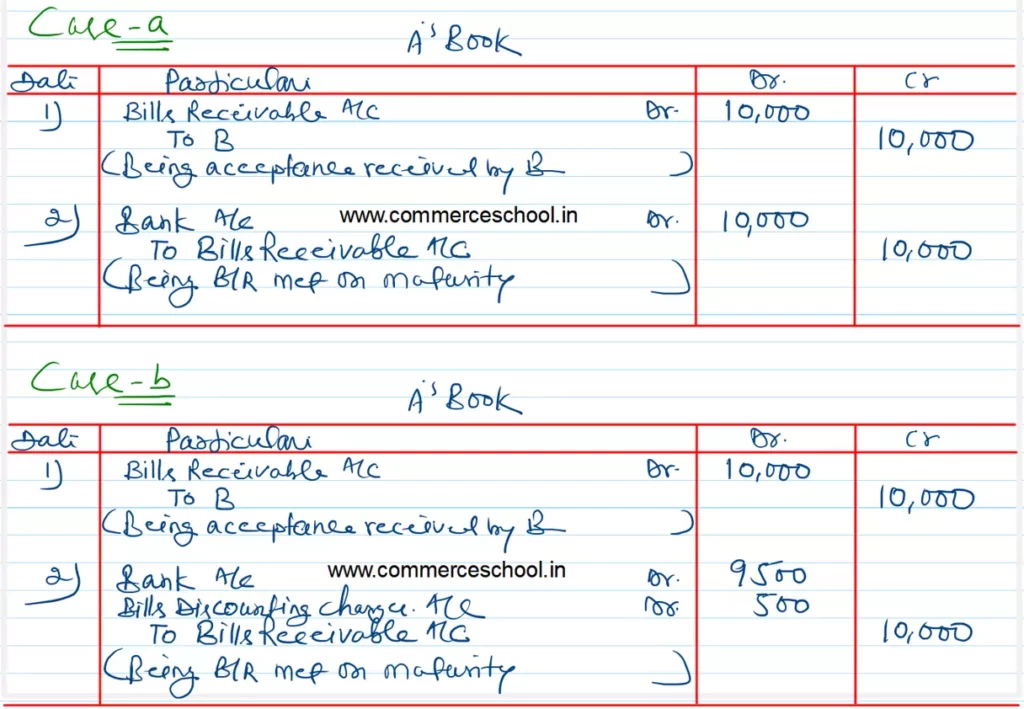 Case-a
A's Book
Date Particulars Dr. Cr
1) Bills Receivable A/C Dr. 10,000
To B 10,000
(Being acceptance received by B )
2) Bank A/c www.commerceschool.in Dr. 10,000
To Bills Receivable A/C 10,000
(Being B/R met on maturity )
Case-b
A's Book
Date Particulars Dr. Cr
1) Bills Receivable A/C Dr. 10,000
To B 10,000
(Being acceptance received by B )
2) Bank A/c www.commerceschool.in Dr. 9500
Bills Discounting Charges A/C Dr. 500
To Bills Receivable A/C 10,000
(Being B/R met on maturity )